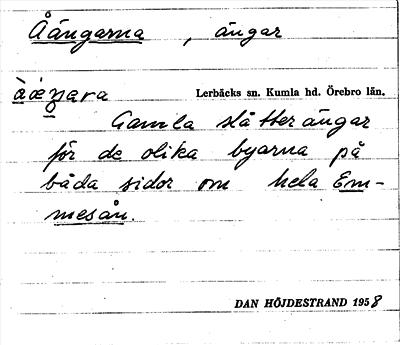 Åängarna, ängar
Lerbäcks sn. Kumla hd. Örebro län.
Gamla slåtterängar
för de olika byarna på
båda sidor om hela Em-
mesån.
DAN HÖJDESTRAND 1958